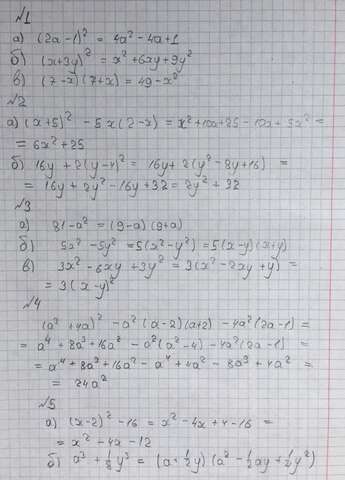 №1
а) (2a-1)² = 4a² - 4a+1
б) (x+3y)² = x² + 6xy + 9y²
в) (7-x)(7+x) = 49-x²
№2
а) (x+5)² - 5x(2-x) = x²+10x+25-10x+5x² =
= 6x² + 25
б) 16y + 2(y-4)² = 16y + 2(y² - 8y+16) =
= 16y + 2y² - 16y + 32 = 2y² + 32
№3
а) 81-a² = (9-a)(9+a)
б) 5x² - 5y² = 5(x²-y²) = 5(x-y)(x+y)
в) 3x² - 6xy + 3y² = 3(x² - 2xy + y²) =
= 3(x-y)²
№4
(a² + 4a)² - a²(a-2)(a+2) - 4a²(2a-1) =
= a⁴ + 8a³ + 16a² - a²(a²-4) - 4a²(2a-1) =
= a⁴ + 8a³ + 16a² - a⁴ + 4a² - 8a³ + 4a² =
= 24a²
№5
а) (x-2)² - 16 = x² - 4x + 4 - 16 =
= x² - 4x - 12
б) a³ + ⅛y³ = (a + ½y)(a² - ½ay + ¼y²)